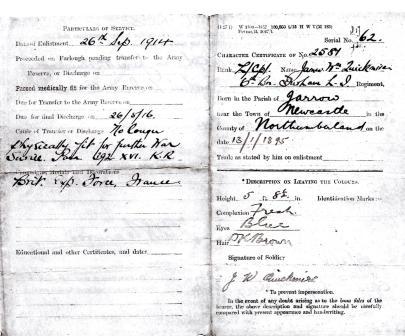 PARTICULARS OF SERVICE.
Date of Enlistment 26th Sep. 1914
Proceeded on Furlough pending transfer to the Army
Reserve, or Discharge on
Passed medically fit for the Army Reserve on
Due for Transfer to the Army Reserve on
Due for final Discharge on 26/5/16.
Cause of Transfer or Discharge No longer
physically fit for further War
Service. Para 392 XVI. K.R.
Campaigns, Medals and Decorations
Brit. Exp. Force, France
Educational and other Certificates, and dates
Serial No. 62.
CHARACTER CERTIFICATE OF No. 2581
Rank L/Cpl. Name James Wm
Durham L.I. Regiment,
Born in the Parish of Jarrow
near the Town of Newcastle
in the County of Northumberland on the
date 13/1/1895
Trade as stated by him on enlistment
*DESCRIPTION ON LEAVING THE COLOURS.
Height 5 ft. 8½ in. Identification Marks:
Complexion Fresh
Eyes Blue
Hair Dk Brown
Signature of Soldier
J W
* To prevent impersonation.
In the event of any doubt arising as to the bona fides of the
bearer, the above description and signature should be carefully
compared with present appearance and handwriting.